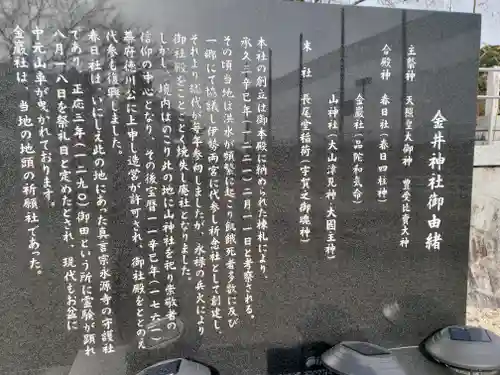 金井神社御由緒
主祭神 天照皇大御神 豊受比賣大神
合殿神 春日社(春日四社神)
金巌社(品陀和気命)
山神社(大山津見神・大国主神)
末社 長尾堂稲荷(宇賀之御魂神)
本社の創立は御本殿に納められた棟札により、
永久二辛巳年(一二二一)二月一一日と考察される。
その頃当地は洪水が頻繁に起こり飢餓死者多数に及び
一郷にて協議し伊勢両宮に代参し祈念社として創建し、
それより現代が毎年参向しましたが、永禄の兵火により
御社殿をことごとく焼失し廃社となりました。
しかし、境内はのこり此の地に山神社を祀り崇敬者の
信仰の中心となり、その後宝暦一一辛巳年(一七六一)
幕府徳川公に上申し造営が許可され、御社殿をととのえ
代参も復興しました。
春日社は、いにしえ此の地にあった真言宗永源寺の守護社
であり、正応三年(一二九〇)御田という所に霊験が顕れ
八月一八日を祭礼日と定めたとされ、現代もお盆に
中元山車が曳かれております。
金巌社は、当地の地頭の祈願社であった。